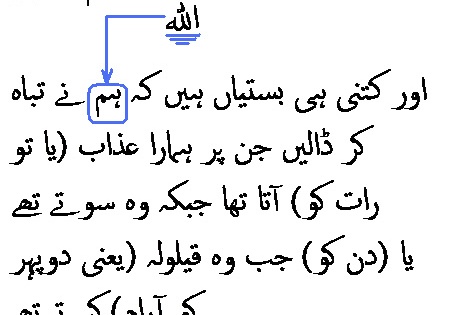 الله
اور کتنی ہی بستیاں ہیں کہ ہم نے تباہ
کر ڈالیں جن پر ہمارا عذاب (یا تو
رات کو) آتا تھا جبکہ وہ سوتے تھے
یا (دن کو) جب وہ قیلولہ (یعنی دوپہر